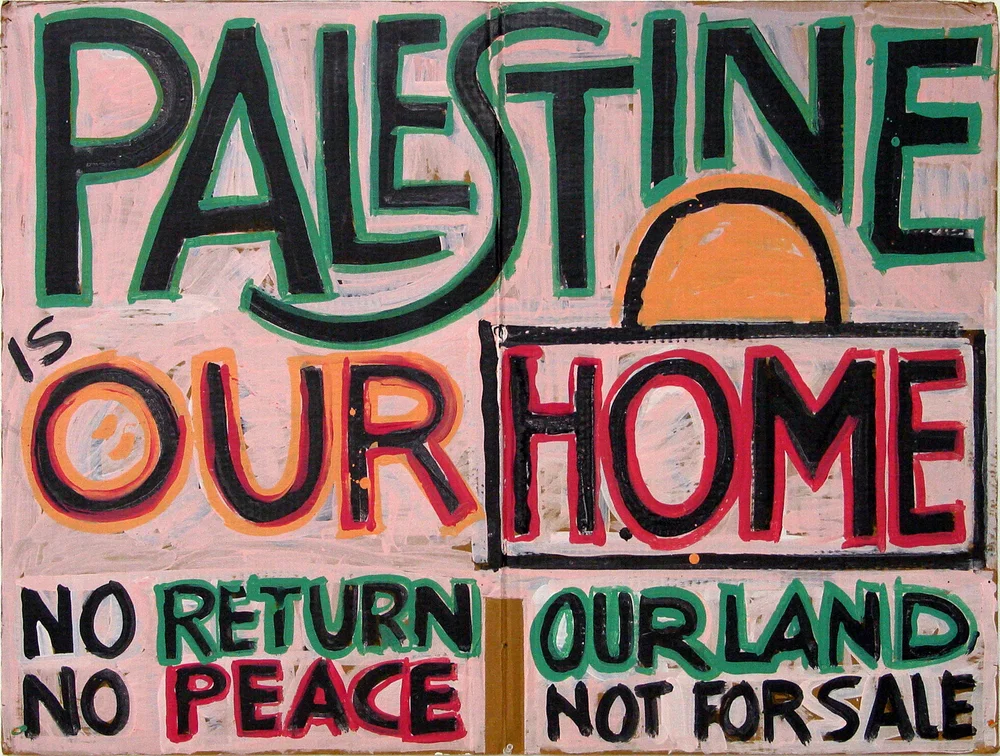 PALESTINE
IS
OUR HOME
NO RETURN
NO PEACE
OUR LAND
NOT FOR SALE